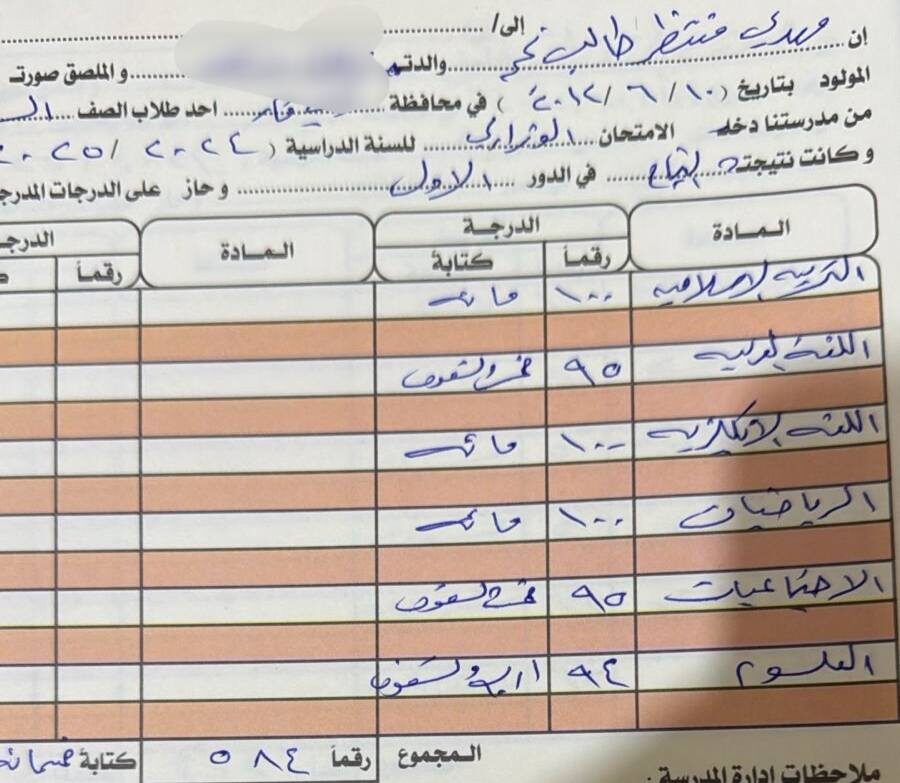 إلى/ ............
إن مهدي منتظر طالب نجم
والدته ............ والملصق صورتـ
المولود بتاريخ (١٠ / ٦ / ٢٠١٢) في محافظة ............ احد طلاب الصف السـ
من مدرستنا دخل الامتحان الوزاري للسنة الدراسية (٢٠٢٤ / ٢٠٢٥
وكانت نتيجته النجاح في الدور الاول وحاز على الدرجات المدرجـ
المــادة الدرجة المــادة الدرجـ
رقماً كتابة رقماً كـ
التربية الاسلامية ١٠٠ مائة
اللغة العربية ٩٥ خمس وتسعون
اللغة الانكليزية ١٠٠ مائة
الرياضيات ١٠٠ مائة
الاجتماعيات ٩٥ خمس وتسعون
العلوم ٩٤ اربع وتسعون
المجموع رقماً ٥٨٤ كتابة خمسمائة
ملاحظات إدارة المدرسة :